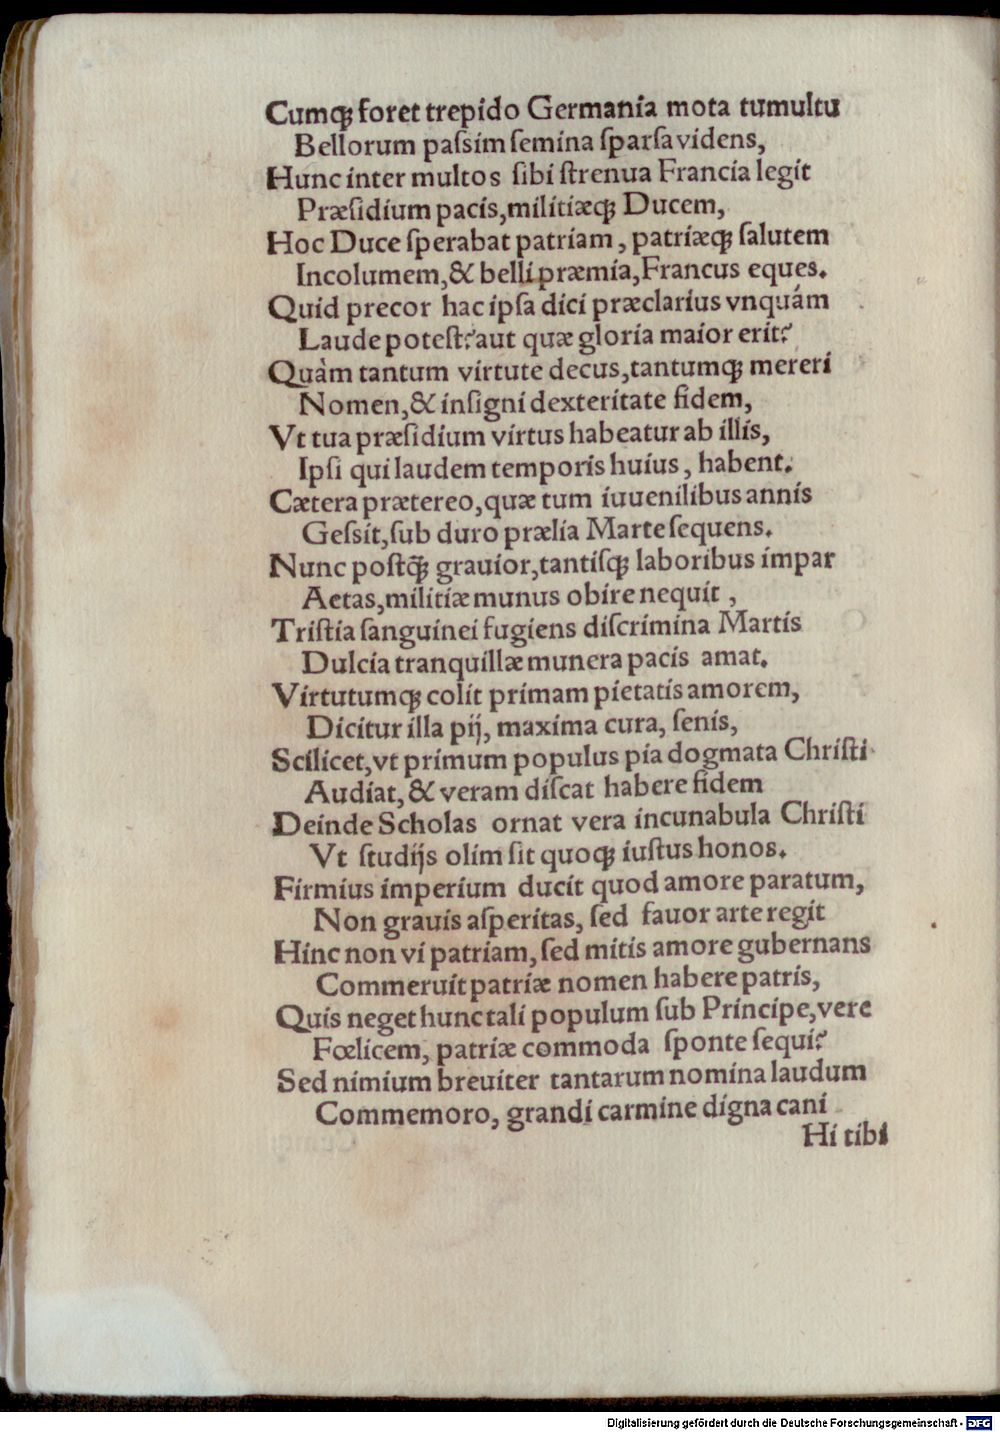 Cumqꝫ foret trepido Germania mota tumultu
Bellorum paſsim ſemina ſparſa videns,
Hunc inter multos ſibi ſtrenua Francia legit
Præſidium pacis, militiæqꝫ Ducem,
Hoc Duce ſperabat patriam, patriæqꝫ ſalutem
Incolumem, & belli præmia, Francus eques.
Quid precor hac ipſa dici præclarius vnquám
Laude poteſt? aut quæ gloria maior erit?
Quàm tantum virtute decus, tantumqꝫ mereri
Nomen, & inſigni dexteritate fidem,
Vt tua præſidium virtus habeatur ab illis,
Ipſi qui laudem temporis huius, habent.
Cætera prætereo, quæ tum iuuenilibus annis
Geſsit, ſub duro prælia Marte ſequens.
Nunc poſtq̃ꝫ grauior, tantiſqꝫ laboribus impar
Aetas, militiæ munus obire nequit,
Triſtia ſanguinei fugiens diſcrimina Martis
Dulcia tranquillæ munera pacis amat.
Virtutumqꝫ colit primam pietatis amorem,
Dicitur illa pij, maxima cura, ſenis,
Scilicet, vt primum populus pia dogmata Chriſti
Audiat, & veram diſcat habere fidem
Deinde Scholas ornat vera incunabula Chriſti
Vt ſtudijs olim ſit quoqꝫ iuſtus honos.
Firmius imperium ducit quod amore paratum,
Non grauis aſperitas, ſed fauor arte regit
Hinc non vi patriam, ſed mitis amore gubernans
Commeruit patriæ nomen habere patris,
Quis neget hunc tali populum ſub Principe, vere
Fœlicem, patriæ commoda ſponte ſequi?
Sed nimium breuiter tantarum nomina laudum
Commemoro, grandi carmine digna cani
Hi tibi
Digitalisierung gefördert durch die Deutsche Forschungsgemeinschaft - DFG